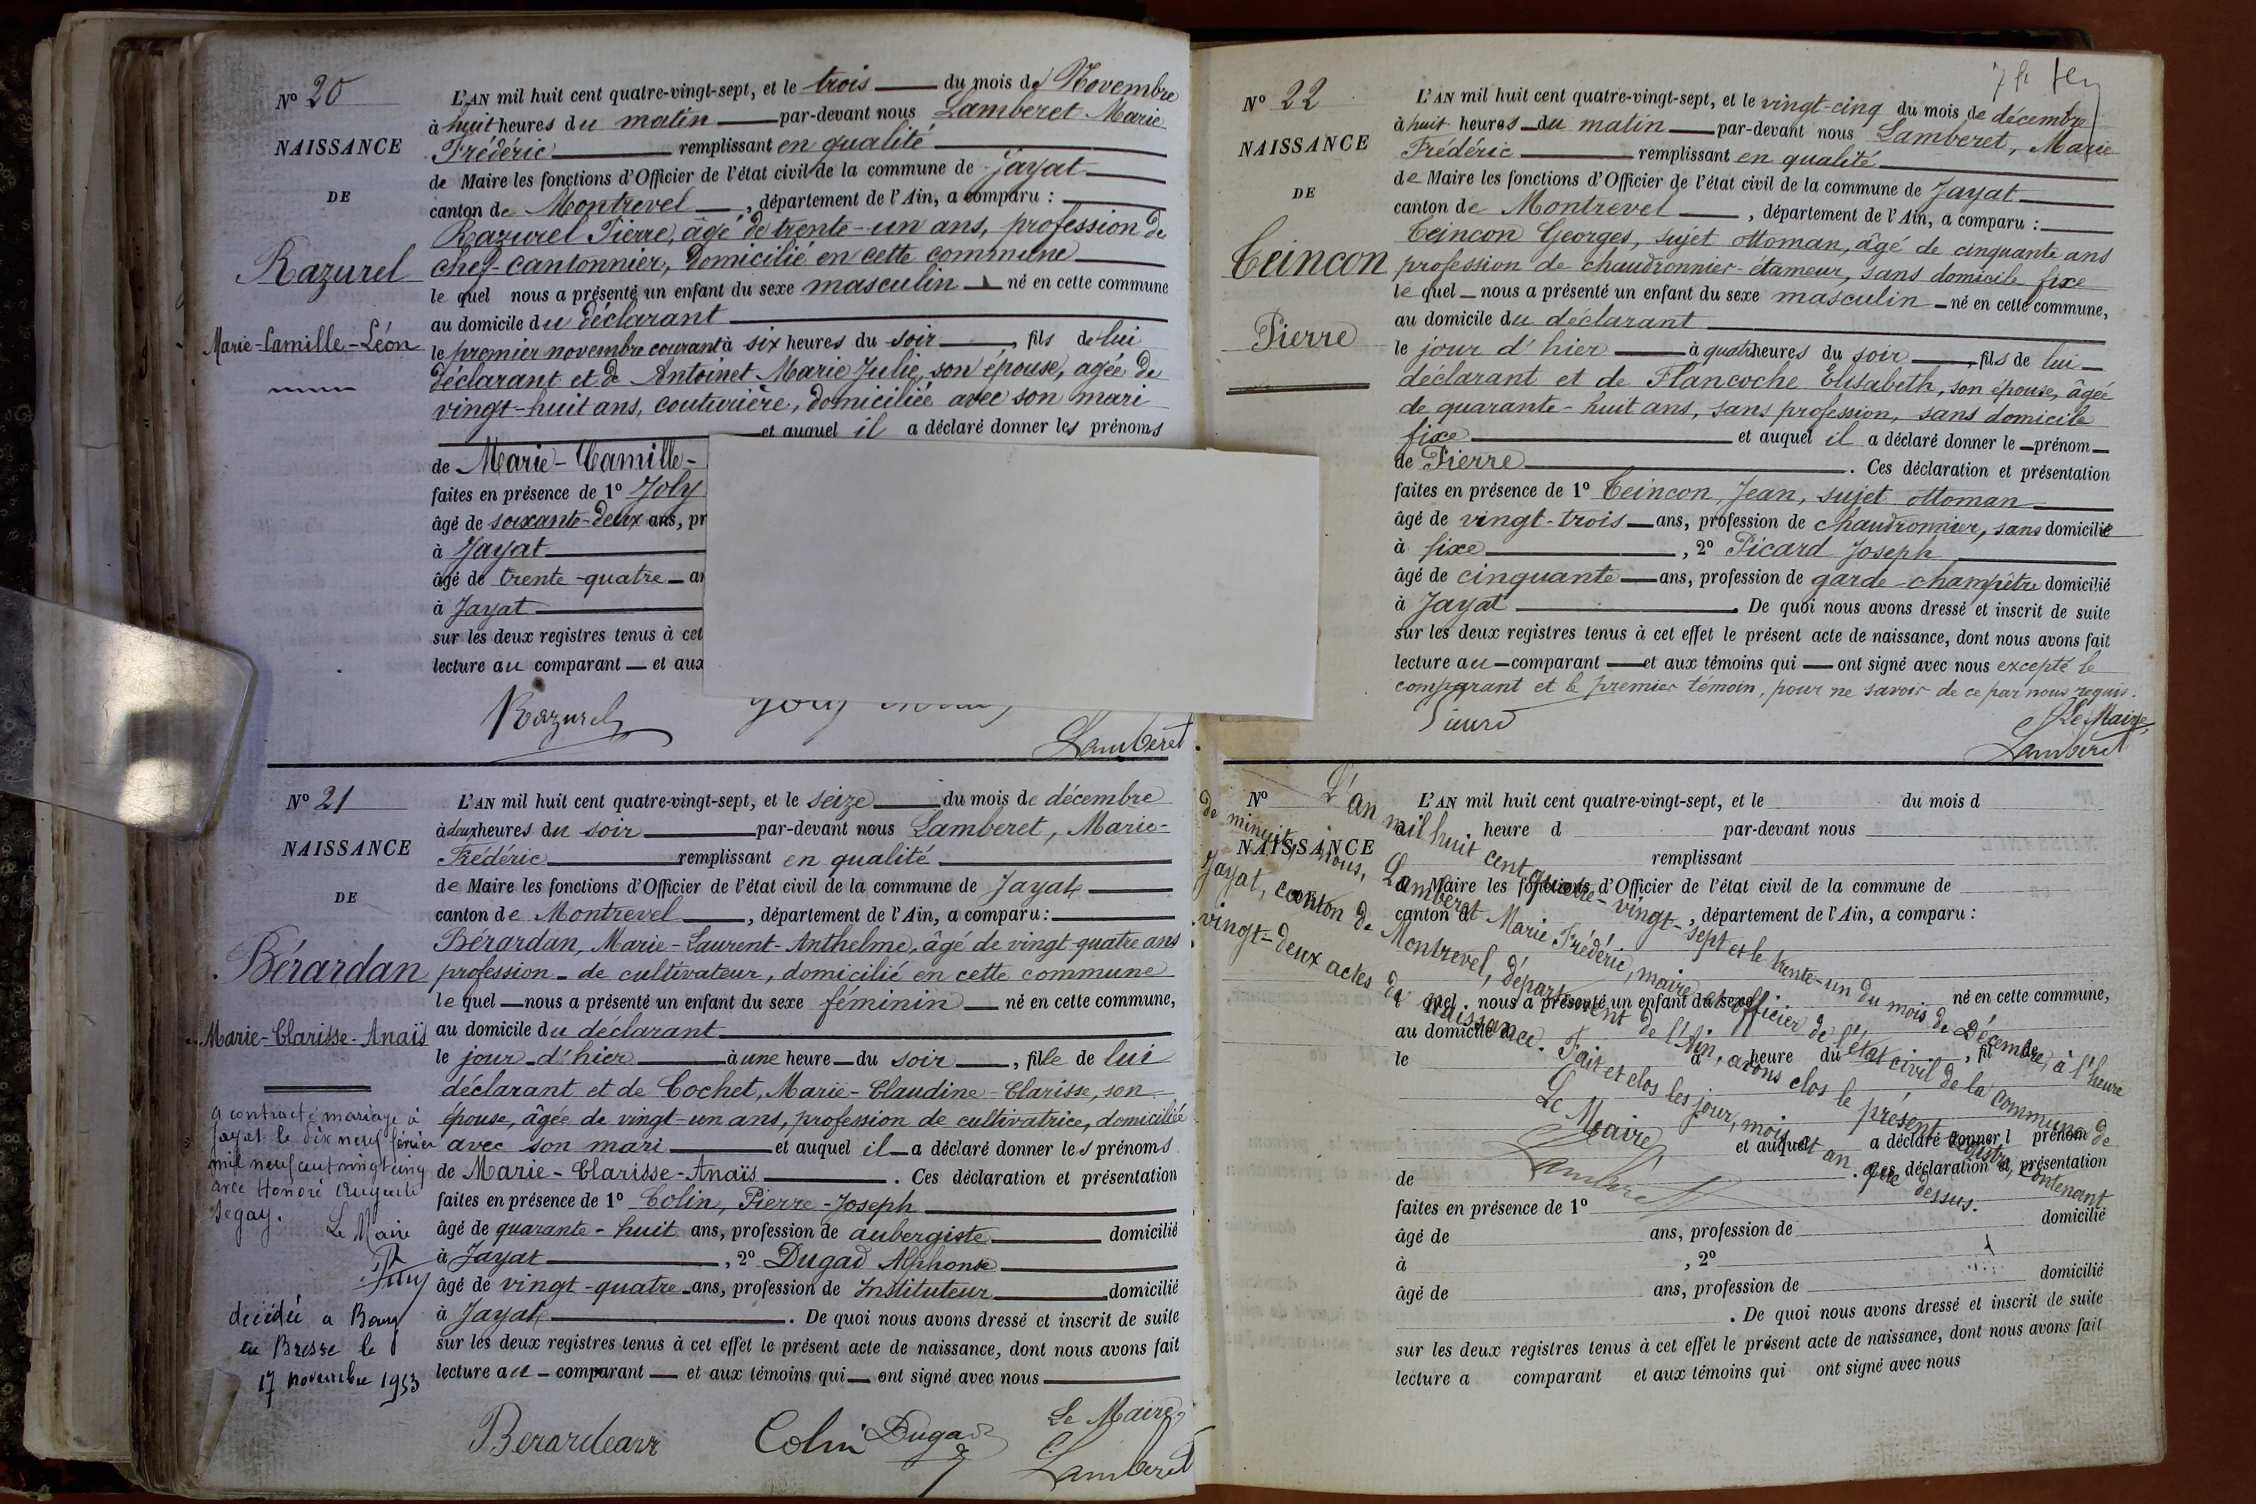 Nº 20
NAISSANCE
DE
Razurel
Marie-Camille-Léon
L'AN mil huit cent quatre-vingt-sept, et le trois du mois de Novembre
à huit heures du matin par-devant nous Lamberet Marie
Frédéric remplissant en qualité
de Maire les fonctions d'Officier de l'état civil de la commune de Jayat
canton de Montrevel, département de l'Ain, a comparu :
Razurel Pierre, âgé de trente-un ans, profession de
chef-cantonnier, domicilié en cette commune
le quel nous a présenté un enfant du sexe masculin né en cette commune
au domicile du déclarant
le premier novembre courant à six heures du soir, fils de lui
déclarant et de Antoinet Marie Julie, son épouse, agée de
vingt-huit ans, couturière, domiciliée avec son mari
et auquel il a déclaré donner les prénoms
de Marie-Camille-
faites en présence de 1º Joly
âgé de soixante-deux ans, pr
à Jayat
âgé de trente-quatre
à Jayat
sur les deux registres tenus à cet
lecture au comparant et aux
Razurel
Lamberet
Nº 21
NAISSANCE
DE
Bérardan
Marie-Clarisse-Anaïs
a contracté mariage à
Jayat le dix neuf février
mil neuf cent vingt cinq
avec Honoré Auguste
Segay.
Le Maire
décédée a Bourg
en Bresse le
17 novembre 1953
L'AN mil huit cent quatre-vingt-sept, et le seize du mois de décembre
à deux heures du soir par-devant nous Lamberet, Marie-
Frédéric remplissant en qualité
de Maire les fonctions d'Officier de l'état civil de la commune de Jayat
canton de Montrevel, département de l'Ain, a comparu :
Bérardan, Marie-Laurent-Anthelme, âgé de vingt-quatre ans
profession de cultivateur, domicilié en cette commune
le quel nous a présenté un enfant du sexe féminin né en cette commune,
au domicile du déclarant
le jour d'hier à une heure du soir, fille de lui
déclarant et de Cochet, Marie-Claudine-Clarisse, son
épouse, âgée de vingt-un ans, profession de cultivatrice, domiciliée
avec son mari et auquel il a déclaré donner les prénoms
de Marie-Clarisse-Anaïs. Ces déclaration et présentation
faites en présence de 1º Colin, Pierre-Joseph
âgé de quarante-huit ans, profession de aubergiste domicilié
à Jayat, 2º Dugad Alphonse
âgé de vingt-quatre ans, profession de Instituteur domicilié
à Jayat. De quoi nous avons dressé et inscrit de suite
sur les deux registres tenus à cet effet le présent acte de naissance, dont nous avons fait
lecture au comparant et aux témoins qui ont signé avec nous
Le Maire,
Berardan Colin Dugad
Lamberet
Nº 22
NAISSANCE
DE
Teincon
Pierre
L'AN mil huit cent quatre-vingt-sept, et le vingt-cinq du mois de décembre
à huit heures du matin par-devant nous Lamberet, Marie
Frédéric remplissant en qualité
de Maire les fonctions d'Officier de l'état civil de la commune de Jayat
canton de Montrevel, département de l'Ain, a comparu :
Teincon Georges, sujet ottoman, âgé de cinquante ans
profession de chaudronnier-étameur, sans domicile fixe
le quel nous a présenté un enfant du sexe masculin né en cette commune,
au domicile du déclarant
le jour d'hier à quatre heures du soir, fils de lui
déclarant et de Flancoche Elisabeth, son épouse, âgée
de quarante-huit ans, sans profession, sans domicile
fixe et auquel il a déclaré donner le prénom
de Pierre. Ces déclaration et présentation
faites en présence de 1º Teincon, Jean, sujet ottoman
âgé de vingt-trois ans, profession de chaudronnier, sans domicilié
à fixe, 2º Picard Joseph
âgé de cinquante ans, profession de garde-champêtre domicilié
à Jayat. De quoi nous avons dressé et inscrit de suite
sur les deux registres tenus à cet effet le présent acte de naissance, dont nous avons fait
lecture au comparant et aux témoins qui ont signé avec nous excepté le
comparant et le premier témoin, pour ne savoir de ce par nous requis.
Picard Le Maire,
Lamberet
Nº
NAISSANCE
L'AN mil huit cent quatre-vingt-sept, et le du mois d
heure d par-devant nous
remplissant
Maire les fonctions d'Officier de l'état civil de la commune de
canton d, département de l'Ain, a comparu :
l quel nous a présenté un enfant du sexe né en cette commune,
au domicile d
le à heure du, fil de
et auquel a déclaré donner l prénom
de. Ces déclaration et présentation
faites en présence de 1º
âgé de ans, profession de domicilié
à, 2º
âgé de ans, profession de domicilié
. De quoi nous avons dressé et inscrit de suite
sur les deux registres tenus à cet effet le présent acte de naissance, dont nous avons fait
lecture a comparant et aux témoins qui ont signé avec nous
L'an mil huit cent quatre-vingt-sept et le trente-un du mois de Décembre, à l'heure
de minuit, nous, Lamberet Marie Frédéric, maire et officier de l'état civil de la commune de
Jayat, canton de Montrevel, département de l'Ain, avons clos le présent registre, contenant
vingt-deux actes de naissance. Fait et clos les jour, mois et an que dessus.
Le Maire,
Lamberet